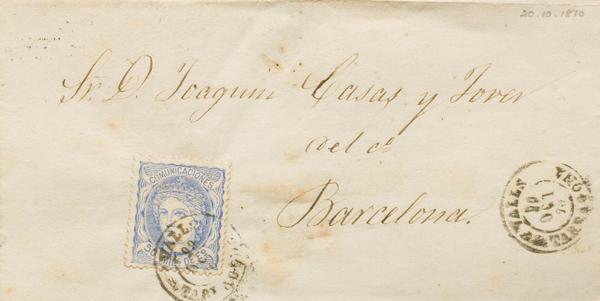 20.10.1870
Sr. D. Joaquin Casas y Jover
del cº
Barcelona.
COMUNICACIONES
50 MIL. DE E.
VALLS
TARRAGONA
VALLS
20 OCT 70
TARRAGONA